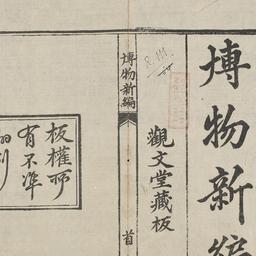 博物新編
觀文堂藏板
博物新編
首
板權所
有不準
翻刻